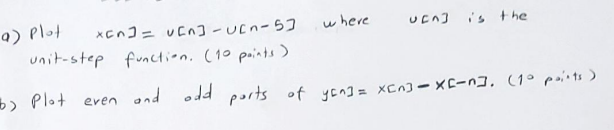 a) Plot x[n] = u[n] - u[n-5] where u[n] is the
unit-step function. (10 points)
b) Plot even and odd parts of y[n] = x[n] - x[-n]. (10 points)